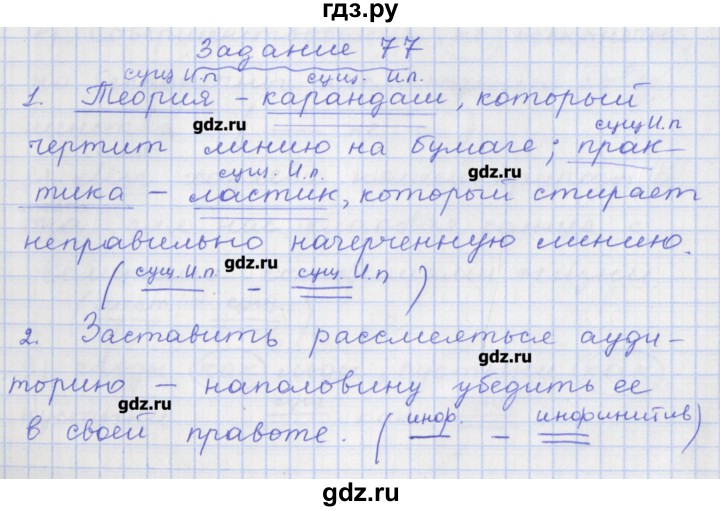 гдз.ру
Задание 77
сущ И.п сущ. И.п.
1. Теория – карандаш, который
gdz.ru сущ И.п
чертит линию на бумаге; прак-
сущ. И.п.
тика – ластик, который стирает
gdz.ru
неправильно начерченную линию.
gdz.ru
(сущ. И.п – сущ. И.п)
2. Заставить рассмеяться ауди-
gdz.ru
торию – наполовину убедить ее
gdz.ru
в своей правоте. (инф. – инфинитив)
gdz.ru